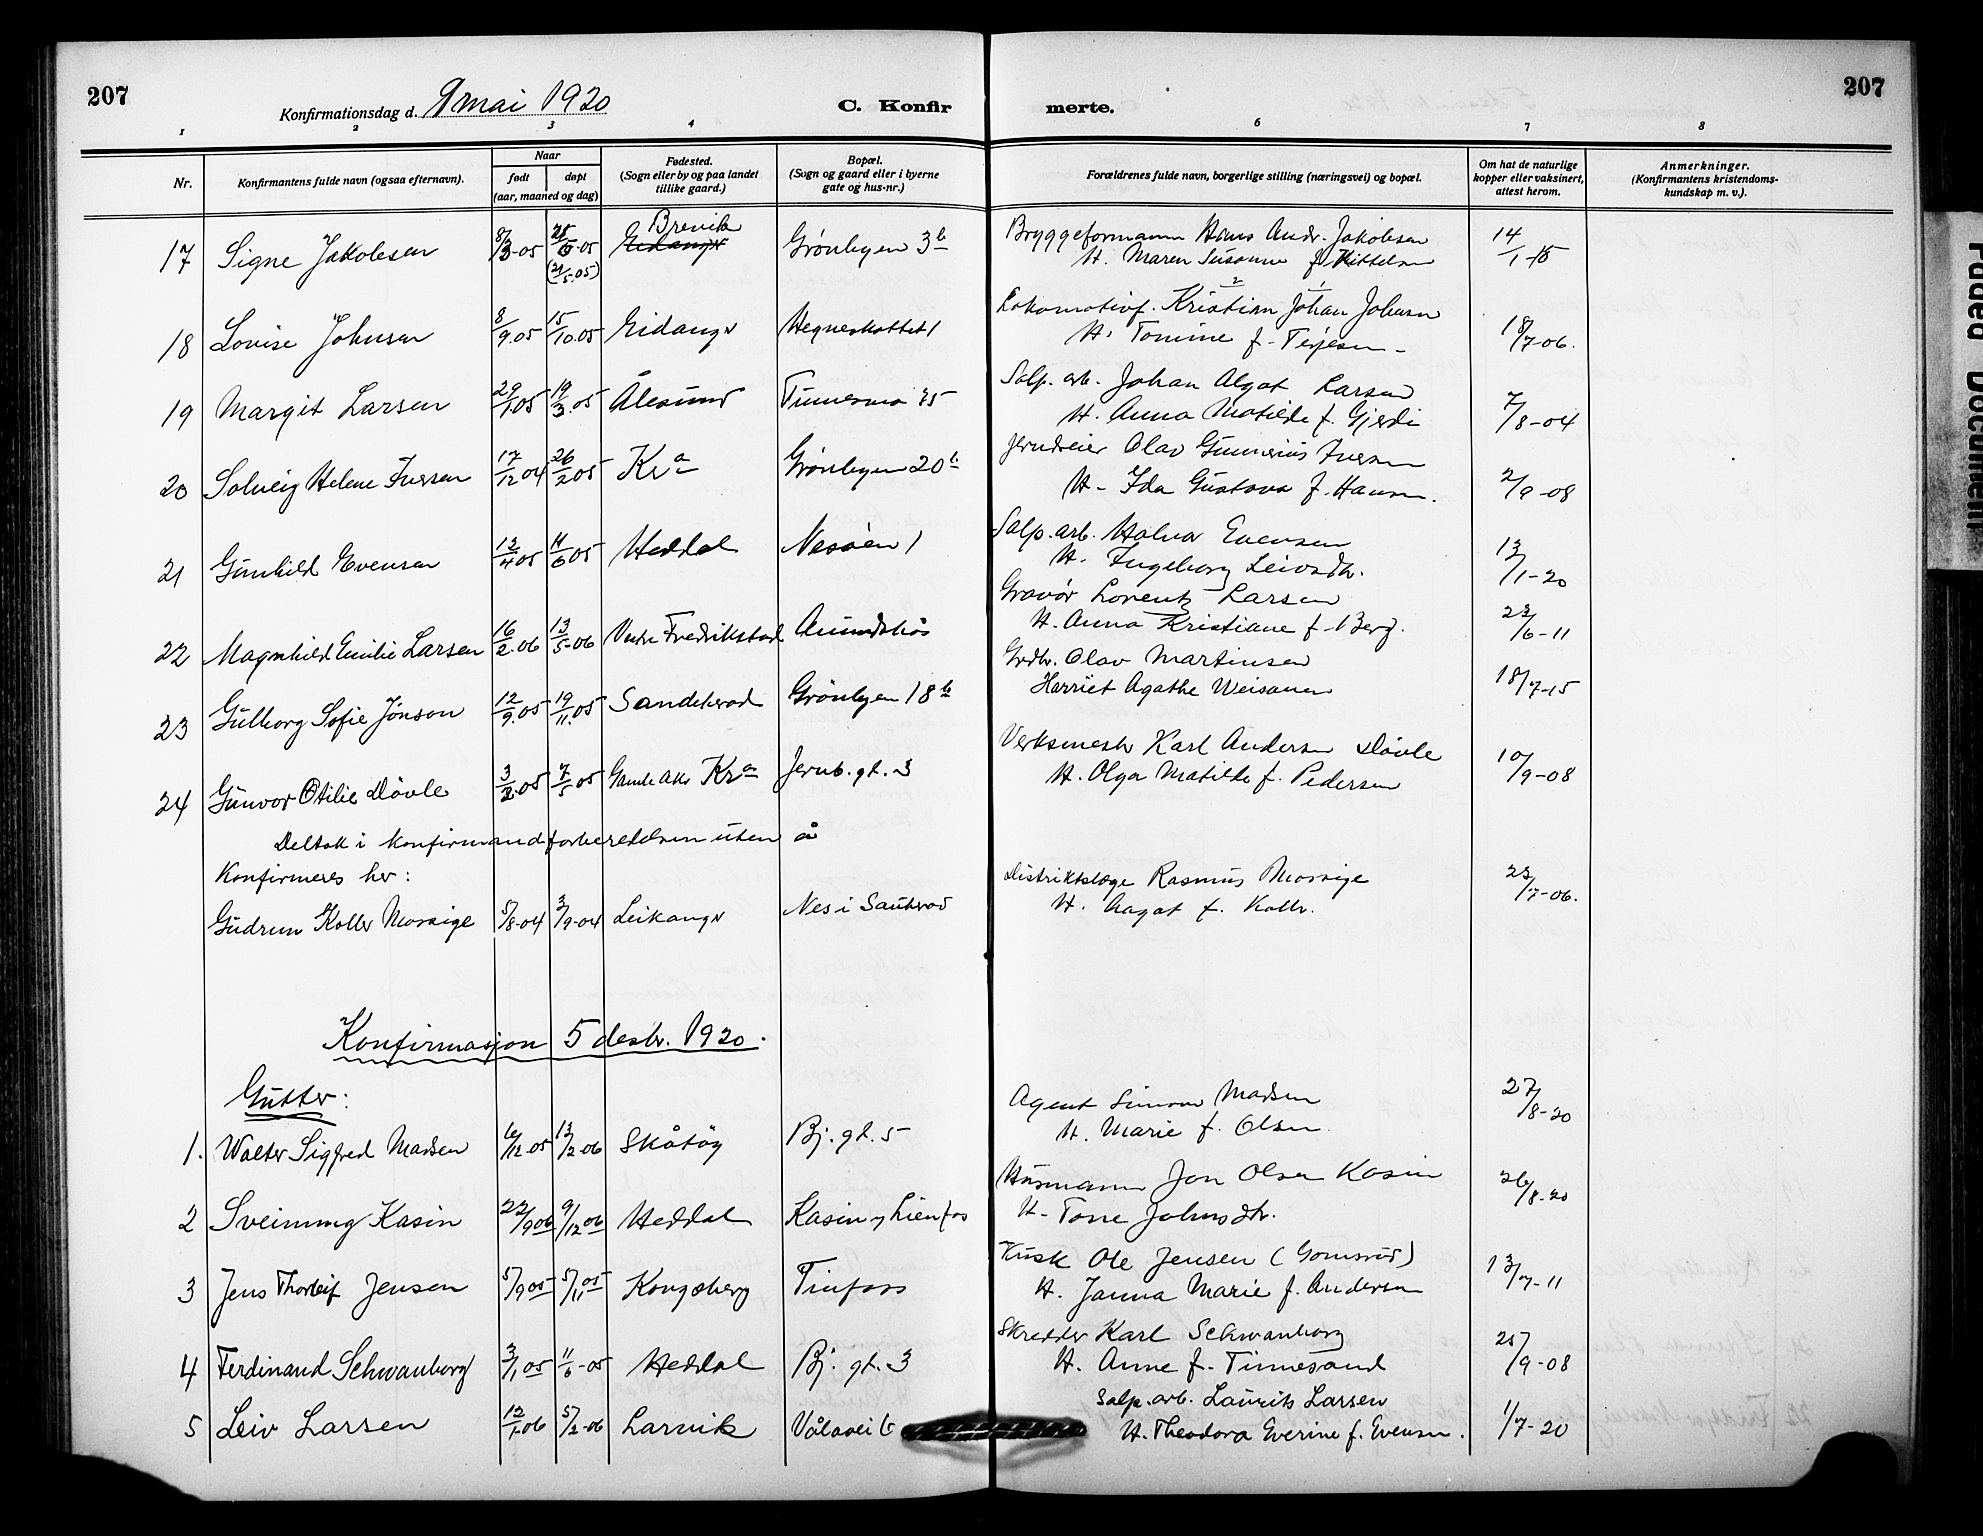 207
Konfirmationsdag d. 9 mai 1920
C. Konfir
merte.
207
1 2 3 4 5 6 7 8
Nr.
Konfirmantens fulde navn (ogsaa efternavn).
Naar
født
døpt
(aar, maaned og dag)
Fødested.
(Sogn eller by og paa landet
tillike gaard.)
Bopæl.
(Sogn og gaard eller i byerne
gate og hus-nr.)
Forældrenes fulde navn, borgerlige stilling (næringsvei) og bopæl.
Om hat de naturlige
kopper eller vaksinert,
attest herom.
Anmerkninger.
(Konfirmantens kristendoms-
kundskap m. v.).
17 Signe Jakobsen 8/3-05 (21/5.05) Brevik Eidanger Grønbyen 3b Bryggeformann Hans Andr. Jakobsen 14/1-15
H. Maren Susanne f. Kittelsen
18 Lovise Johnsen 8/9.05 15/10.05 Eidanger Hegneskottet 1 Lokomotivf. Kristian Johan Johnsen 18/7-06.
H. Tomine f. Terjesen
19 Margit Larsen 29/1.05 19/3.05 Ålesund Tinnesmo 25 Salp. arb. Johan Algot Larsen 7/8-04
H. Anna Matilde f. Gjerdi
20 Solveig Helene Iversen 17/12 04 26/2 05 Kra Grønbyen 20b Jerndreier Olav Gunnerius Iversen 2/9-08
H. Ida Gustava f. Hansen.
21 Gunhild Evensen 12/4 05 11/6 05 Heddal Nesøen 1 Salp. arb. Halvor Evensen 13/1-20
H. Ingeborg Leivsdtr.
22 Magnhild Emilie Larsen 16/2.06 13/5-06 Vestre Fredrikstad Amundshås Gravør Lorentz Larsen 23/6-11
H. Anna Kristiane f. Berg.
23 Gulborg Sofie Jönson 12/9.05 19/11.05 Sandeherad Grönbyen 18b Grdbr. Olav Martinsen 18/7-15
Harriet Agathe Weisanen
24 Gunvor Otilie Dövle 3/2.05 7/5 05 Gamle Aker Kra Jernb. gt. 3 Verksmestr Karl Andersen Dövle 10/9-08
H. Olga Matilde f. Pedersen
Deltok i konfirmandforberedelsen uten å
Konfirmeres her:
Gudrun Koller Morsige 5/8-04 3/9-04 Leikanger Nes i Sauherad Distriktslæge Rasmus Morsige 23/7-06.
H. Aagot f. Koller.
Konfirmasjon 5 desbr. 1920.
Gutter:
1. Walter Sigfred Madsen 6/12.05 13/2.06 Skåtöy Bj. gt. 5 Agent Simon Madsen 27/8-20
H. Marie f. Olsen
2 Sveinung Kasin 22/9 06 9/12 06 Heddal Kasin, Lienfos Husmann Jon Olsen Kasin 26/8-20
H. Tone Johnsdtr.
3 Jens Thorleif Jensen 5/9 05 5/11 05 Kongsberg Tinfoss Kusk Ole Jensen (Gomsrud) 13/7-11
H. Janna Marie f. Andersen
4 Ferdinand Schwanborg 3/1 05 11/6-05 Heddal Bj. gt. 3 Skredder Karl Schwanborg 25/9-08
H. Anne f. Tinnesand
5 Leiv Larsen 12/1.06 5/2-06 Larvik Vålavei 6 Salp. arb. Laurits Larsen 1/7-20
H. Theodora Everine f. Evensen.